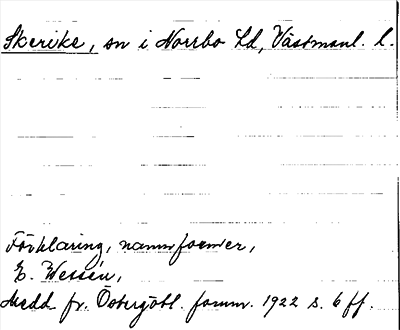 Skerike, sn i Norrbo hd, Västmanl. l.
Förklaring, namnformer,
E. Wessén,
Medd. fr. Östergötl. fornm. 1922 s. 6 ff.